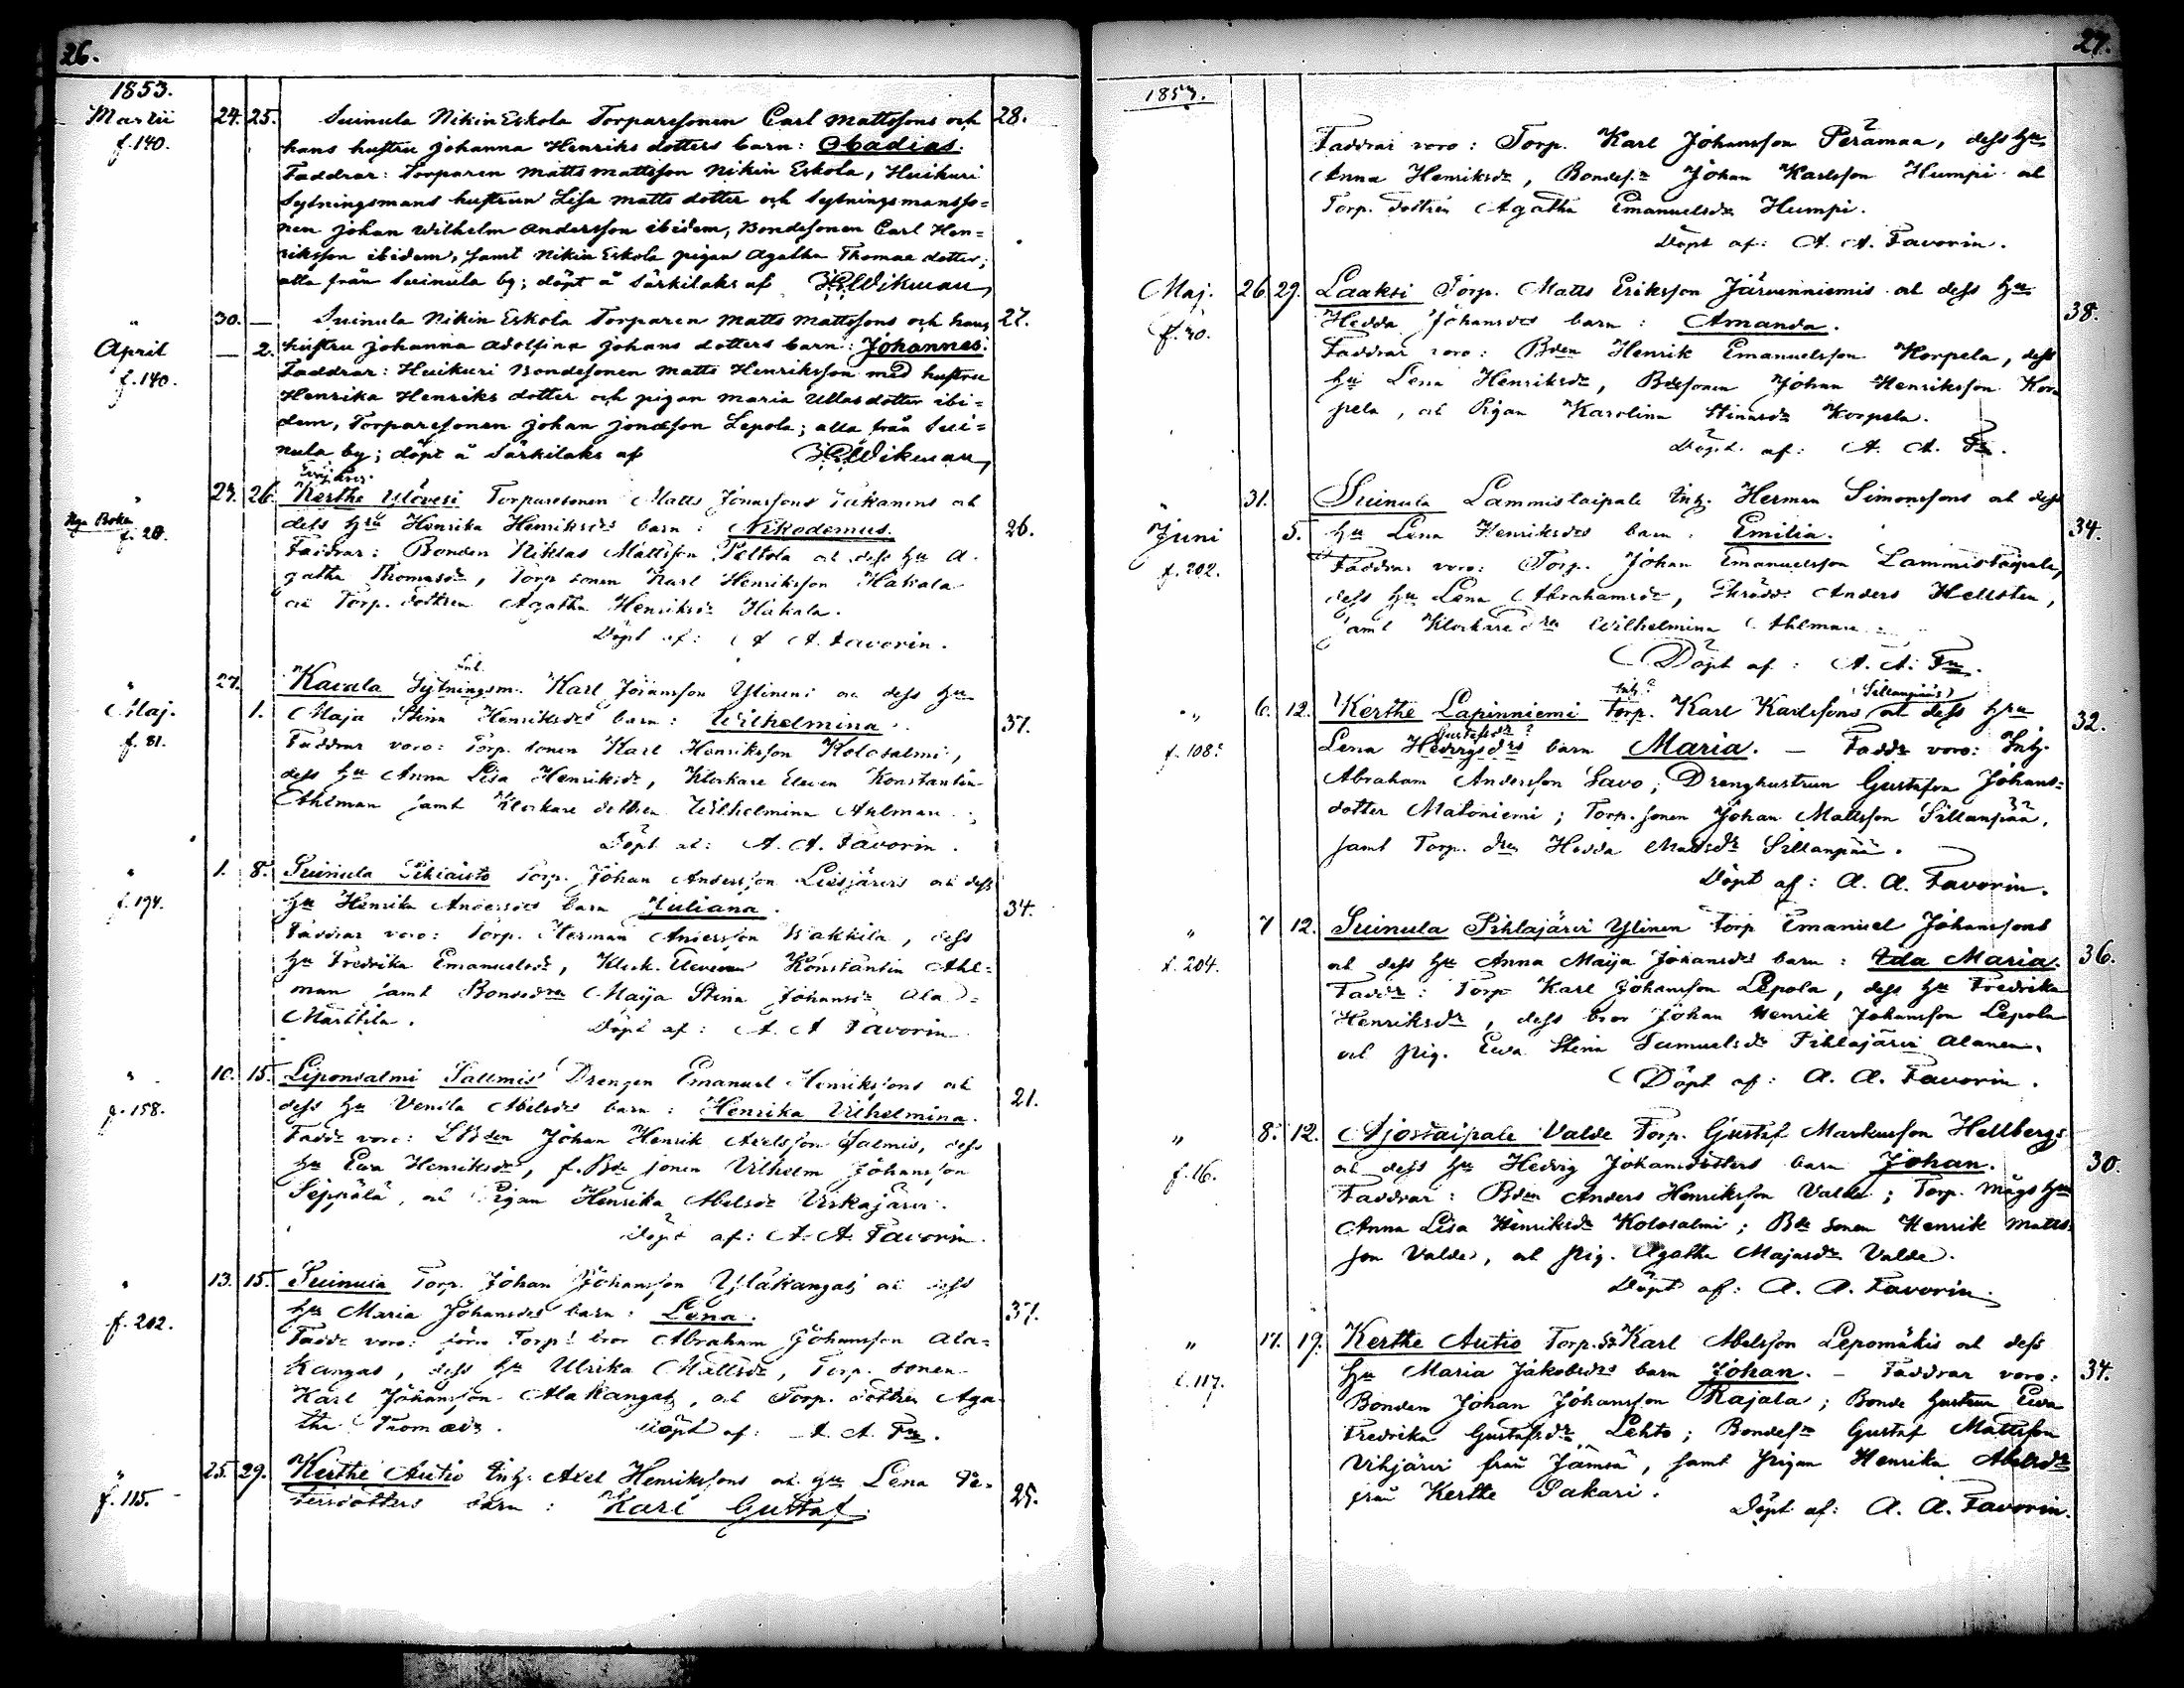 26.
1853.
Martii 24. 25. Suinula Nikin Eskola Torparesonen Carl Mattssons och 28.
f. 140. hans hustru Johanna Henriks dotters barn: Obadias.
Faddrar: Torparen Matts Mattsson Nikin Eskola, Huikuri
Sytningsmans hustrun Lisa Matts dotter och Sytningsmansso=
nen Johan Wilhelm Andersson ibidem, Bondesonen Carl Hen=
riksson ibidem, samt Nikin Eskola pigan Agatha Thomae dotter;
alla från Suinula by; döpt å Särkilaks af Wikman
" 30. — Suinula Nikin Eskola Torparen Matts Mattssons och hans 27.
April — 2. hustru Johanna Adolfina Johans dotters barn: Johannes.
f. 140. Faddrar: Huikuri Bondesonen Matts Henriksson med hustru
Henrika Henriks dotter och pigan Maria Ullas dotter ibi=
dem, Torparesonen Johan Jonasson Lepola; alla från Sui=
nula by; döpt å Särkilaks af Wikman
" 24. 26. Kerthe Ylövesi Torparesonen Matts Jonassons och
Nya Boken f. 20. dess hru Henrika Henriksdrs barn: Nikodemus. 26.
Faddrar: Bonden Niklas Mattsson Peltola och dess hu A=
gatha Thomasdr, Torp sonen Karl Henriksson Hakala
och Torp. dottren Agatha Henriksdr Hakala.
Döpt af: A A. Favorin.
" 27. Kavala Sytningsm. Karl Johansson Ylinens och dess hu
Maj. 1. Maja Stina Henriksdrs barn: Wilhelmina. 37.
f. 81. Faddrar voro: Torp. sonen Karl Henriksson Kolosalmi,
dess hu Anna Lisa Henriksdr, Klockare Eleven Konstantin
Ahlman samt Klockare dottren Wilhelmina Ahlman.
Döpt af: A. A. Favorin.
" 1. 8. Suinula Torp. Johan Andersson och dess
f. 194. hu Henrika Andersdrs barn Juliana. 34.
Faddrar voro: Torp. Herman Andersson Wakkila, dess
hu Fredrika Emanuelsdr, Klock. Eleven Konstantin Ahl=
man samt Bondedrn Maija Stina Johansdr Ala=
Marttila. Döpt af: A. A Favorin.
" 10. 15. Liponsalmi Salmis Drengen Emanuel Henrikssons och
f. 158. dess hu Venila Abelsdrs barn: Henrika Vilhelmina. 21.
Faddr voro: LBden Johan Henrik Axelsson Salmis, dess
hu Ewa Henriksdr, f. Bde sonen Vilhelm Johansson
Seppälä, och Pigan Henrika Abelsdr Virkajärvi.
Döpt af: A. A. Favorin.
" 13. 15. Suinula Torp. Johan Johansson Yläkangas och dess
f. 202. hu Maria Johansdrs barn: Lena. 37.
Faddr voro: förre Torp: bror Abraham Johansson Ala=
kangas, dess hu Ulrika Mattsdr, Torp. sonen
Karl Johansson Alakangas, och Torp. dottren Aga=
tha Thomædr. Döpt af: A. A. Fn.
" 25. 29. Kerthe Autio Inh. Axel Henrikssons och hu Lena Pe=
f. 115. tersdotters barn: Karl Gustaf. 25.
27.
1853.
Faddrar voro: Torp. Karl Johansson Perämaa, dess hu
Anna Henriksdr, Bondes:n Johan Karlsson Humpi och
Torp. dottren Agatha Emanuelsdr Humpi.
Döpt af: A. A. Favorin.
Maj. 26. 29. Laaksi Torp. Matts Eriksson Järvenniemis och dess hu
f. 40. Hedda Johansdrs barn: Amanda. 38.
Faddrar voro: Bden Henrik Emanuelsson Korpela, dess
hu Lena Henriksdr, Bdesonen Johan Henriksson Kor=
pela, och Pigan Karolina Stinasdr Korpela.
Döpt af: A. A. Fn.
" 31. Suinula Lammistaipale Inh. Herman Simonssons och dess
Juni 5. hu Lena Henriksdrs barn: Emilia. 34.
f. 202. Faddrar voro: Torp. Johan Emanuelsson Lammistaipale,
dess hu Lena Abrahamsdr, Skrädd. Anders Hellsten,
samt Klockare drn Wilhelmina Ahlman.
Döpt af: A. A. Fn.
" 6. 12. Kerthe Lapinniemi Torp. Karl Karlssons (Sillanpääs) och dess hru 32.
f. 108. Lena Hedvigsdrs barn Maria. – Faddr voro: Inh.
Abraham Andersson Savo; Drenghustrun Gustafva Johans=
dotter Matoniemi; Torp. sonen Johan Mattsson Sillanpää,
samt Torp. drn Hedda Mattsdr Sillanpää.
Döpt af: A. A. Favorin.
" 7 12. Suinula Pihlajärvi Ylinen Torp Emanuel Johanssons
f. 204. och dess hu Anna Maija Johansdrs barn: Ida Maria. 36.
Faddr: Torp Karl Johansson Lepola, dess hu Fredrika
Henriksdr, dess bror Johan Henrik Johansson Lepola
och pig. Ewa Stina Samuelsdr Pihlajärvi Alanen.
Döpt af: A. A. Favorin.
" 8. 12. Ajostaipale Valde Torp. Gustaf Markusson Hellbergs
f. 16. och dess hu Hedvig Johansdotters barn Johan. 30.
Faddrar: Bden Anders Henriksson Valde; Torp. Mågs hu
Anna Lisa Henriksdr Kolosalmi; Bde sonen Henrik Matts=
son Valde, och pig. Agatha Majasdr Valde.
Döpt af: A. A. Favorin.
" 17. 19. Kerthe Autio Torp.s: Karl Abelsson Lepomäkis och dess
f. 117. hu Maria Jakobsdrs barn Johan. – Faddrar voro: 34.
Bonden Johan Johansson Rajala; Bonde hustrun Ewa
Fredrika Gustafsdr Lehto; Bondesn Gustaf Mattsson
Vihjärvi från Jämsä, samt pigan Henrika Abelsdr
från Kerthe Sakari. Döpt af: A. A. Favorin.